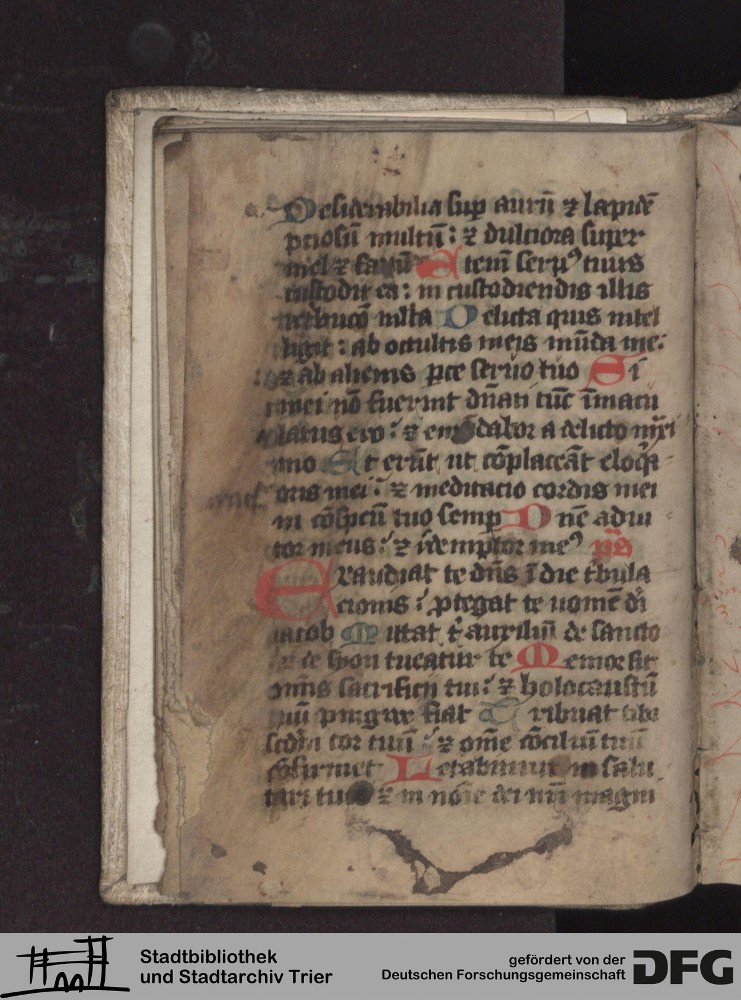 Desiderabilia sup aurū ⁊ lapidē
p̄ciosū multū: ⁊ dulciora super
mel ⁊ fauū Etenī seruꝰ tuus
custodit ea: in custodiendis illis
retbucō mlta Delicta quis intel
ligit: ab occultis meis mūda me:
⁊ ab alienis pce seruo tuo Si
mei nō fuerint dn̄ati tūc īmacu
latus ero: ⁊ emūdabor a delicto
mo Et erūt ut cōplaceāt eloq̄
oris mei: ⁊ meditacio cordis mei
in cōspcū tuo semp Dne adiu
tor meus: ⁊ redemptor meꝰ ps
Exaudiat te dn̄s ī die tbula
cionis: ptegat te nomē di
iacob Mittat t auxiliū de sancto
de syon tueatur te Memor sit
omīs sacrificij tui: ⁊ holocaustū
tuū pingue fiat Tribuat tibi
scdm cor tuū: ⁊ ome cōciliū tuū
cōfirmet Letabimur in salu
tari tuo ⁊ in noīe dei nr̄i magni
Stadtbibliothek
und Stadtarchiv Trier
gefördert von der
Deutschen Forschungsgemeinschaft
DFG